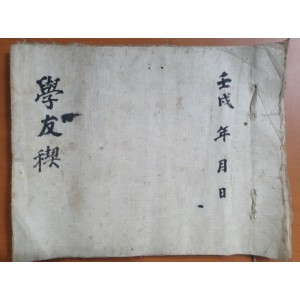 壬戌 年 月 日
學友稧